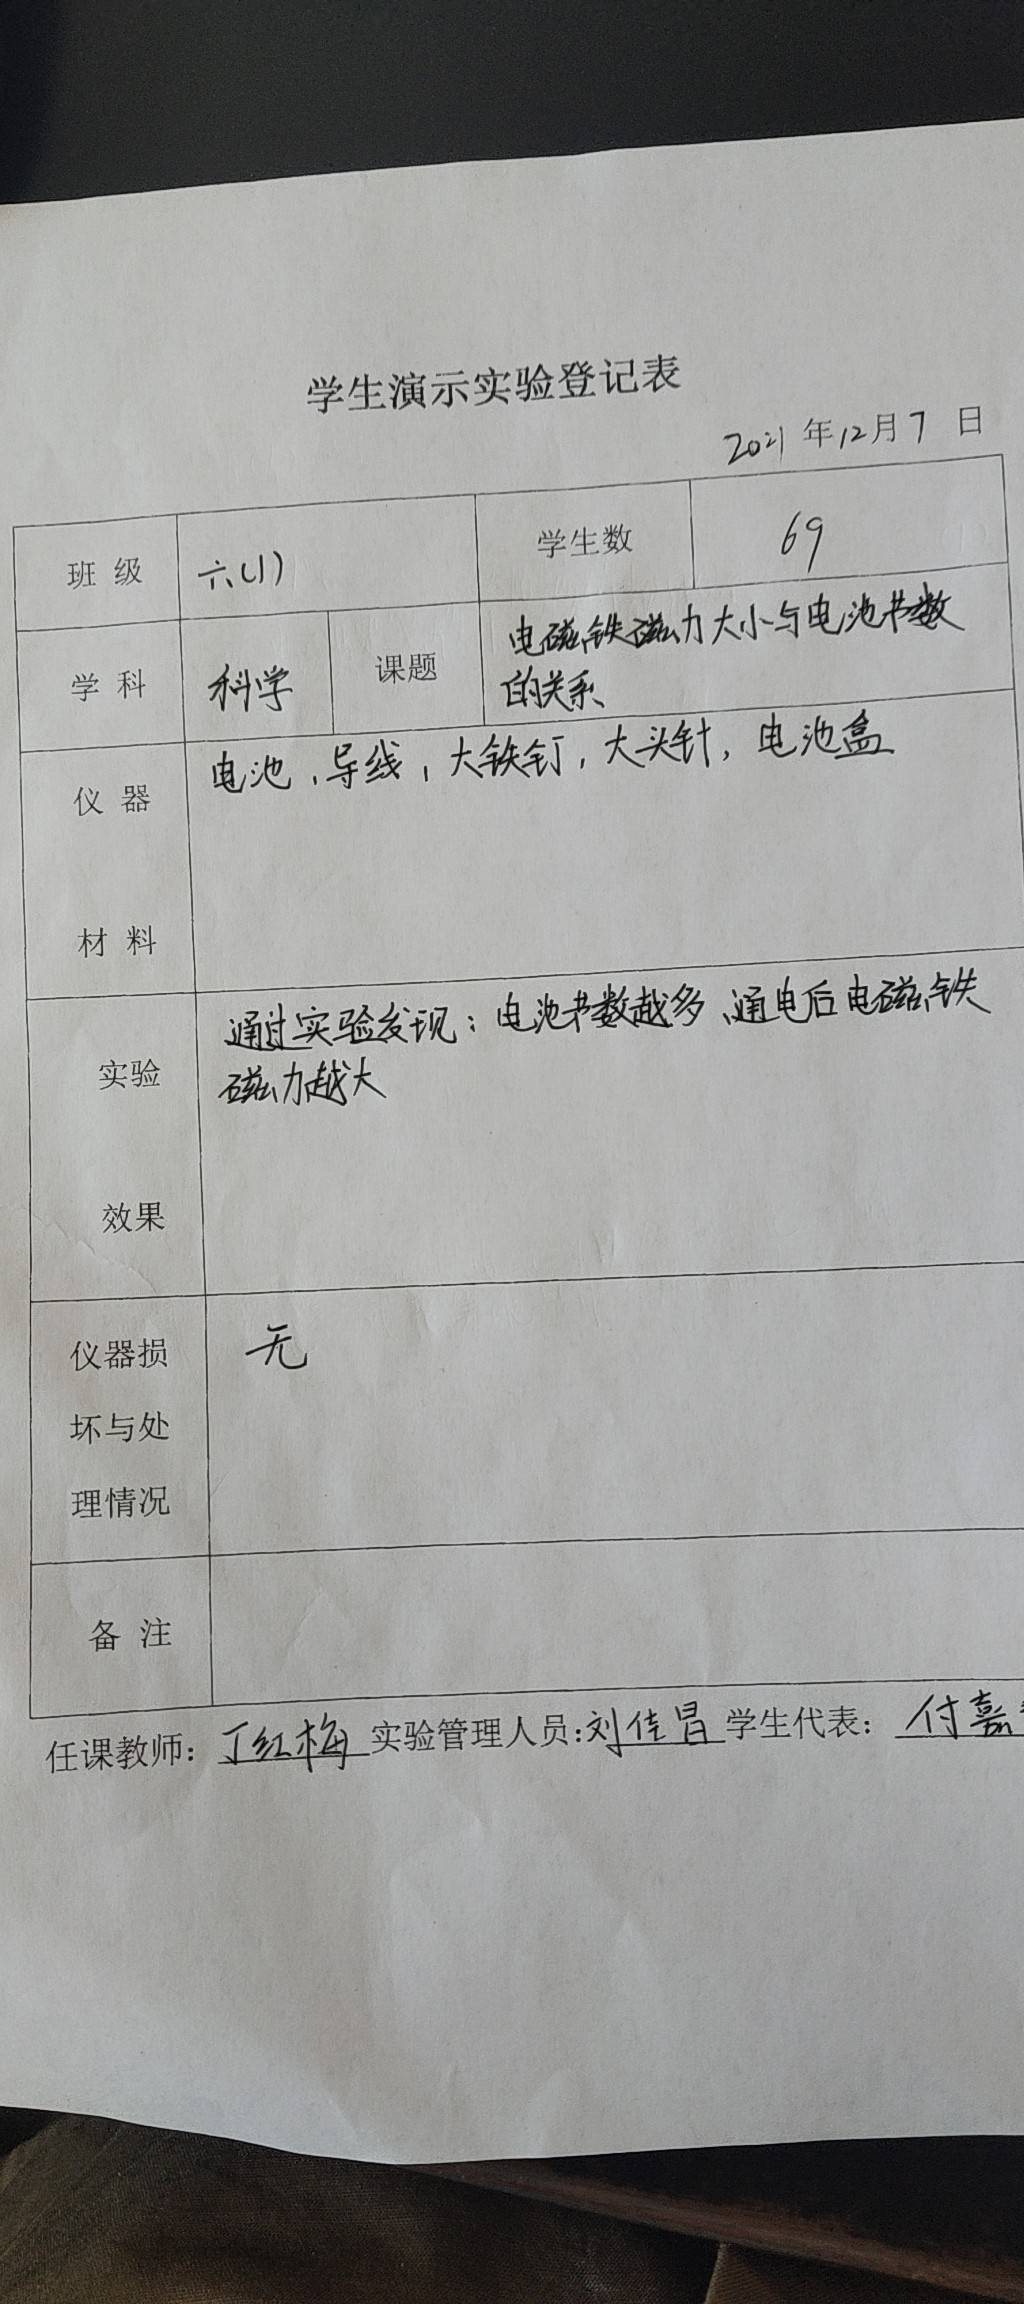 学生演示实验登记表
2021年12月7日
班级 六(1) 学生数 69
学科 科学 课题 电磁铁磁力大小与电池节数
的关系
仪器 电池,导线,大铁钉,大头针,电池盒
材料
实验 通过实验发现:电池节数越多、通电后电磁铁
磁力越大
效果
仪器损 无
坏与处
理情况
备注
任课教师:丁红梅 实验管理人员:刘佳昌 学生代表:付嘉